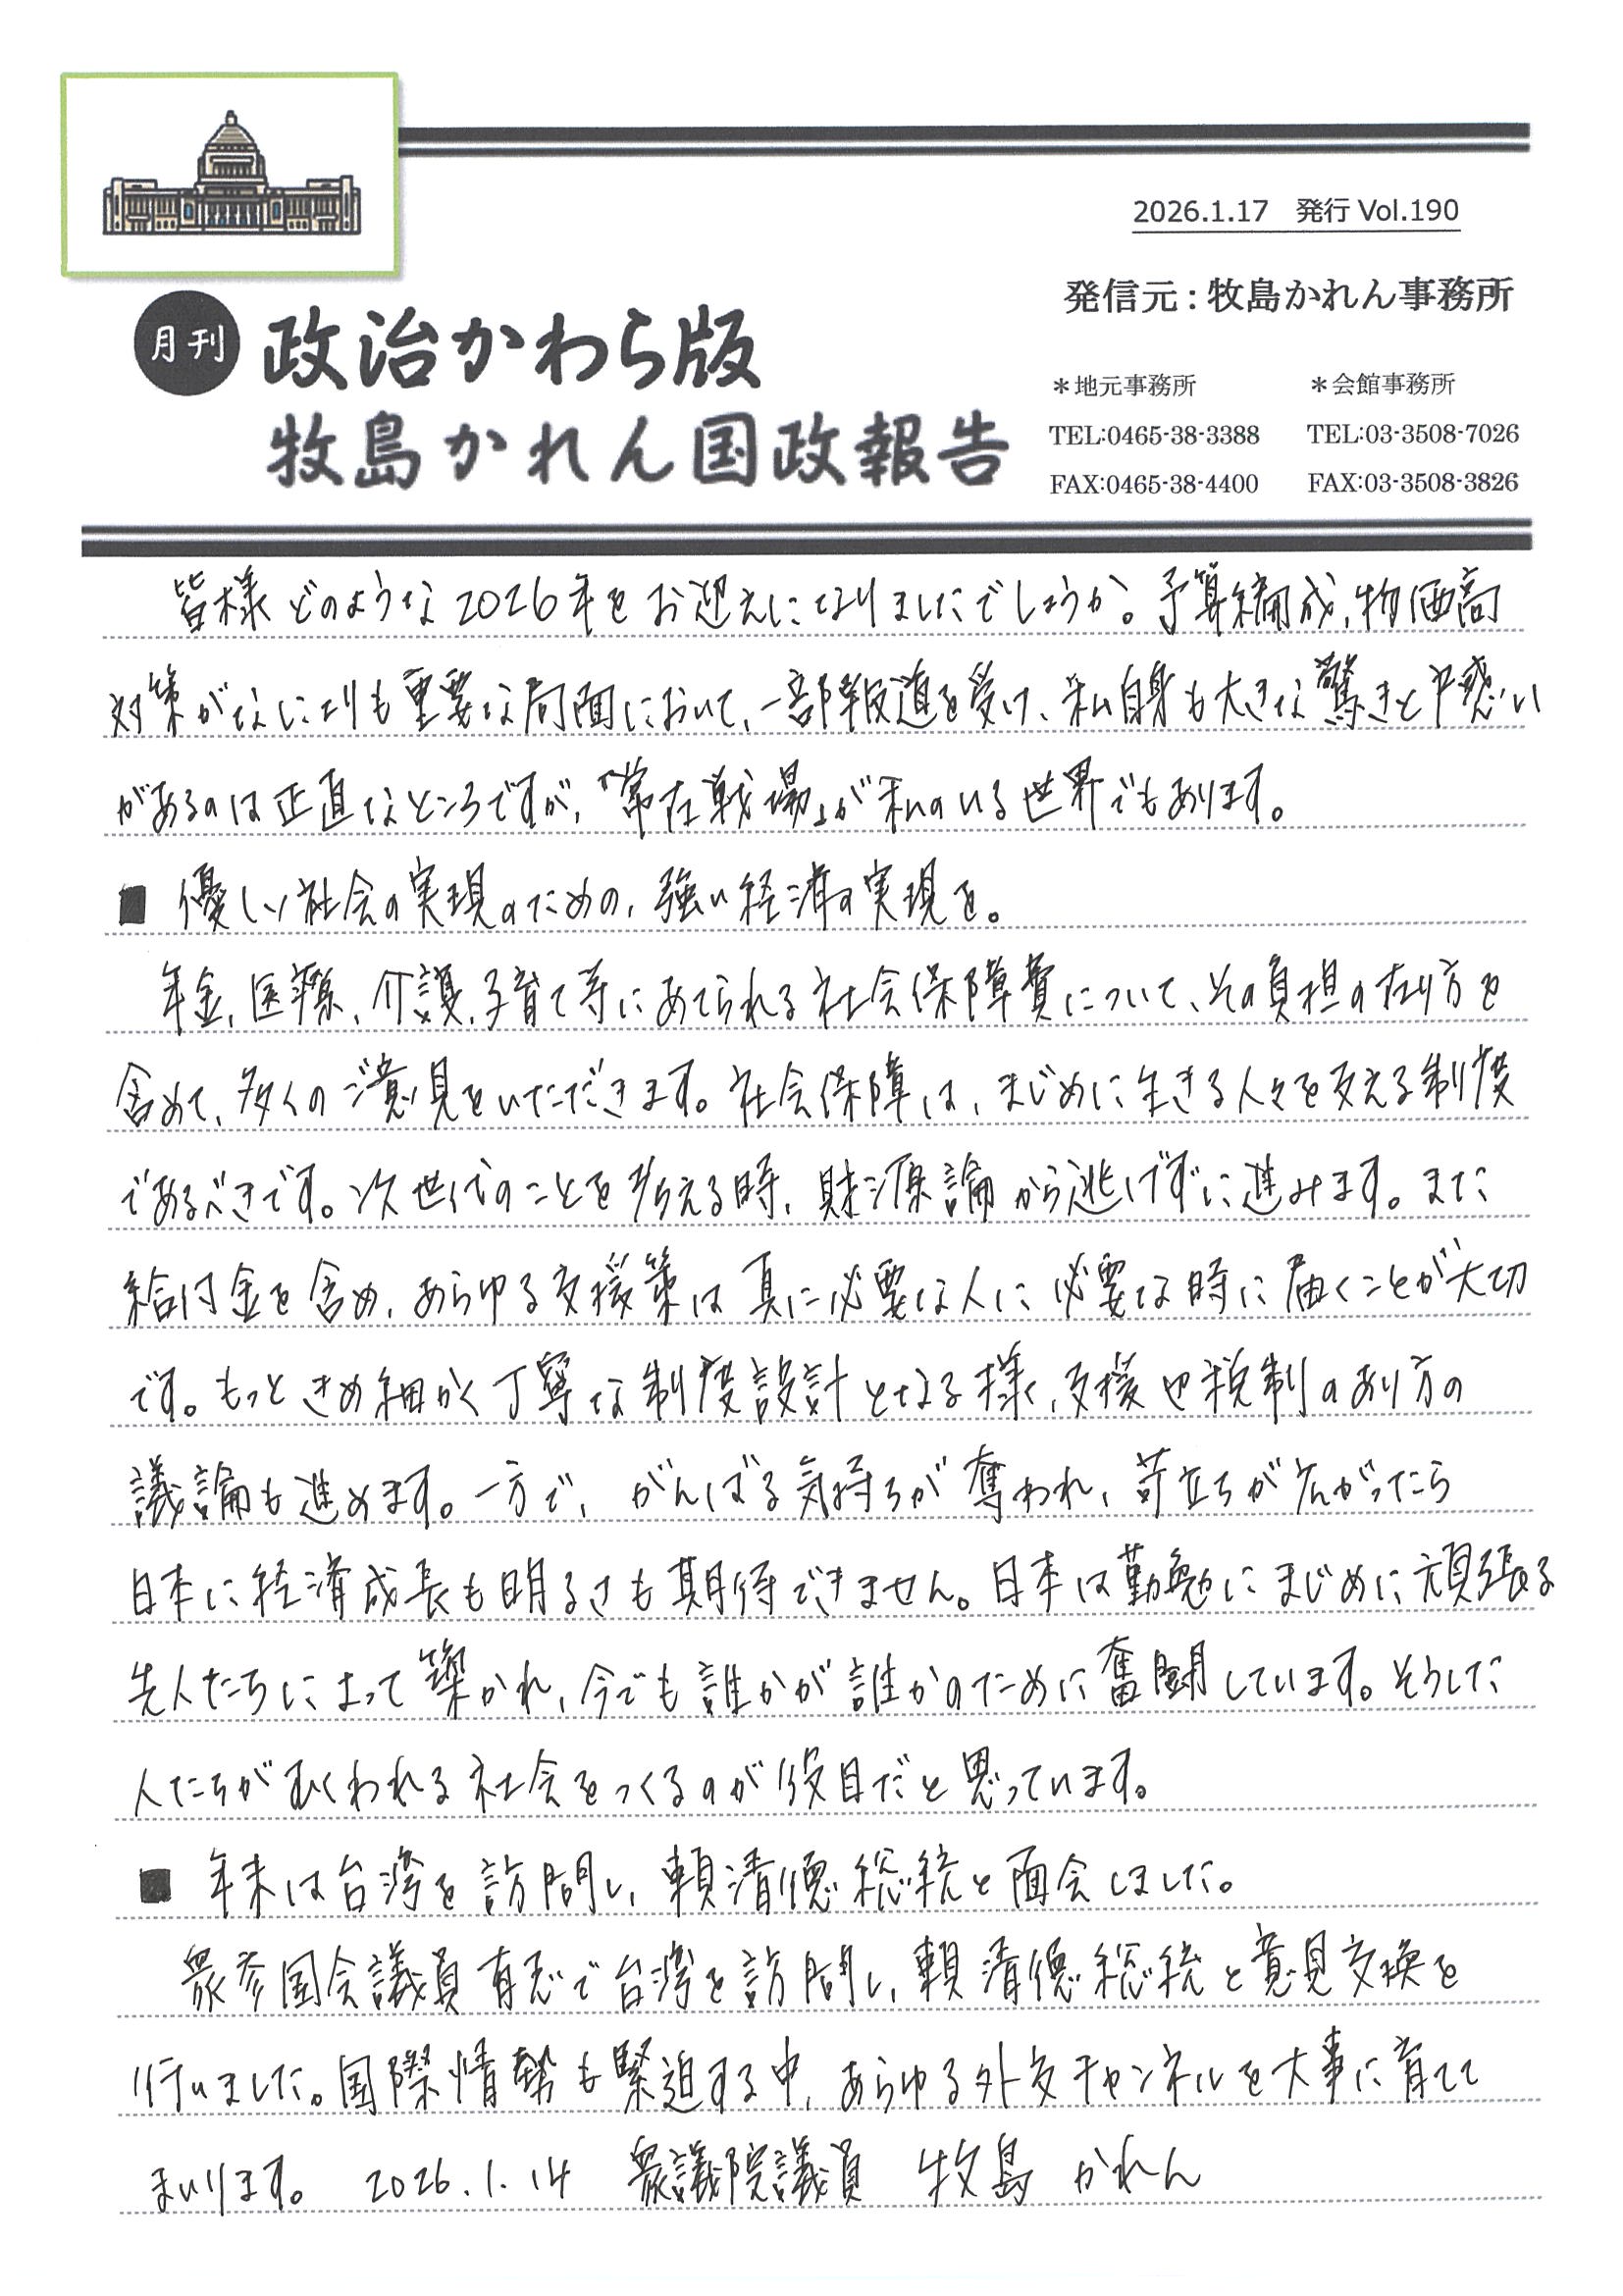 2026.1.17 発行 Vol.190
発信元：牧島かれん事務所
月刊 政治かわら版
牧島かれん国政報告
＊地元事務所 ＊会館事務所
TEL:0465-38-3388 TEL:03-3508-7026
FAX:0465-38-4400 FAX:03-3508-3826
皆様どのような2026年をお迎えになりましたでしょうか。予算編成、物価高
対策がなによりも重要な局面において、一部報道を受け、私自身も大きな驚きと戸惑い
があるのは正直なところですが、「常在戦場」が私のいる世界でもあります。
■ 優しい社会の実現のための、強い経済の実現を。
年金、医療、介護、子育て等にあてられる社会保障費について、その負担の在り方を
含めて、多くのご意見をいただきます。社会保障は、まじめに生きる人々を支える制度
であるべきです。次世代のことを考える時、財源論から逃げずに進みます。また
給付金を含め、あらゆる支援策は真に必要な人に必要な時に届くことが大切
です。もっときめ細かく丁寧な制度設計となる様、支援や税制のあり方の
議論も進めます。一方で、がんばる気持ちが奪われ、苛立ちが広がったら
日本に経済成長も明るさも期待できません。日本は勤勉にまじめに頑張る
先人たちによって築かれ、今でも誰かが誰かのために奮闘しています。そうした
人たちがむくわれる社会をつくるのが役目だと思っています。
■ 年末は台湾を訪問し、頼清徳総統と面会しました。
衆参国会議員有志で台湾を訪問し、頼清徳総統と意見交換を
行いました。国際情勢も緊迫する中、あらゆる外交チャンネルを大事に育てて
まいります。 2026.1.14 衆議院議員 牧島 かれん